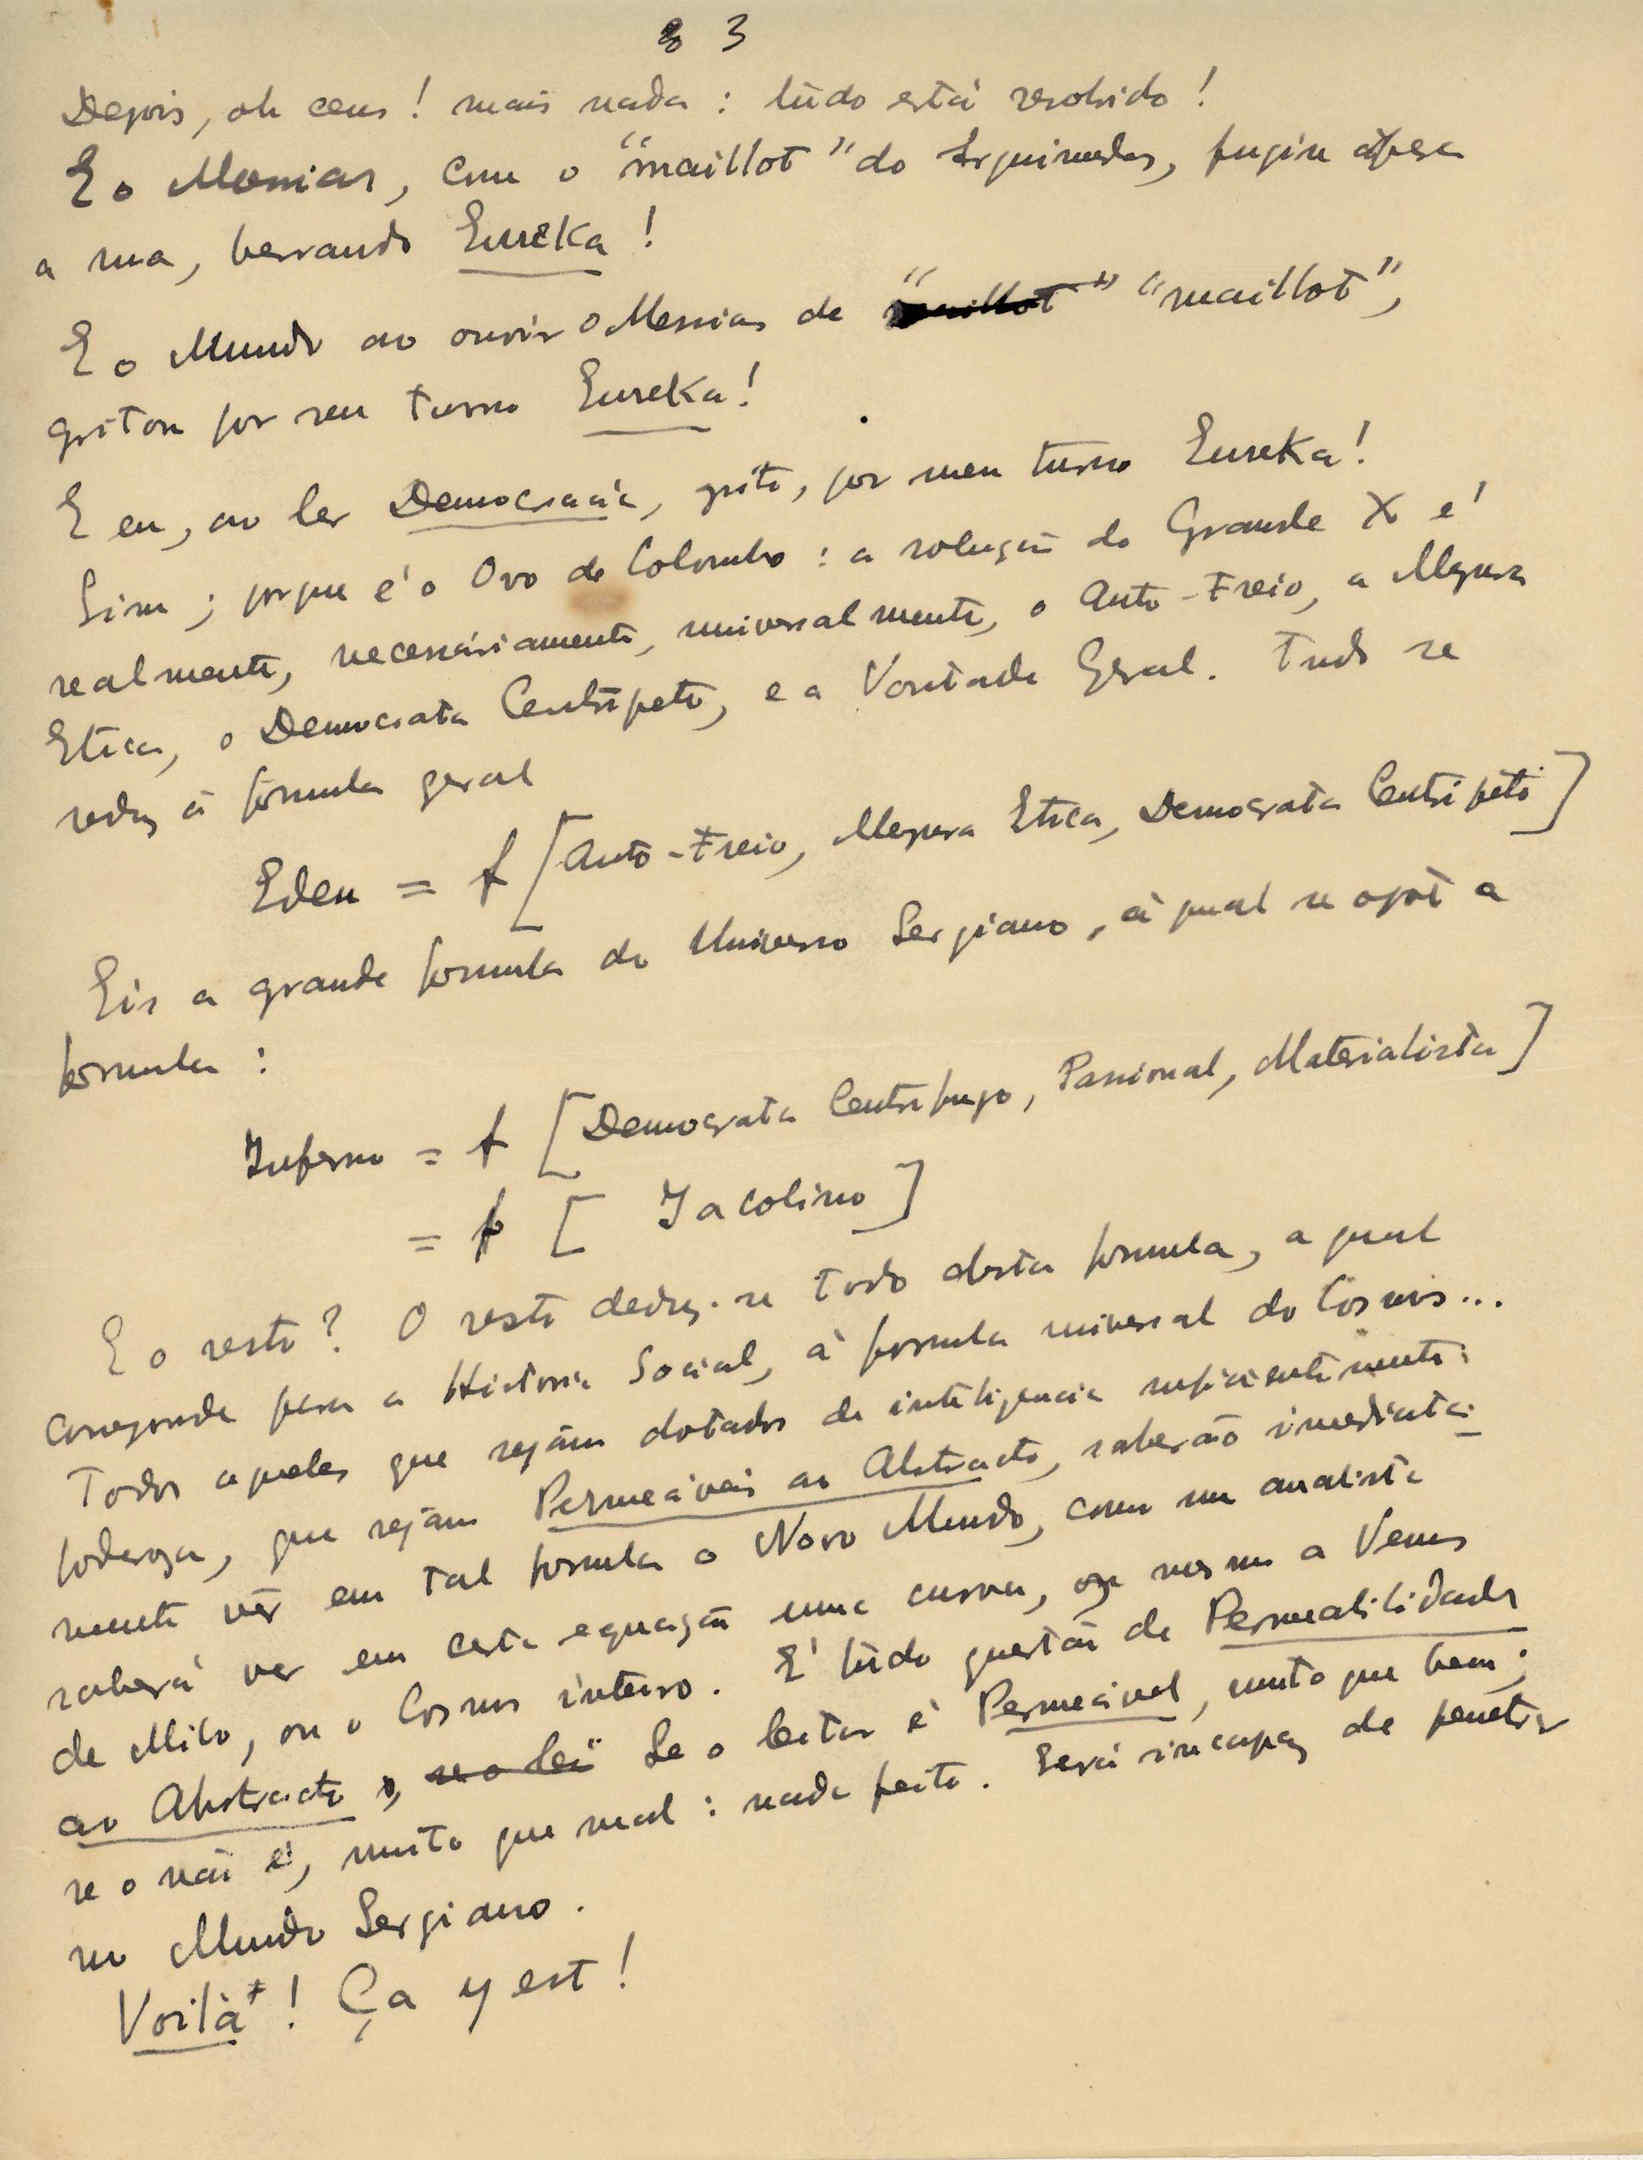 3
Depois, oh ceus! mais nada: tùdo está resolvido!
E o Messias, com o "maillot" do Arquimedes, fugiu
a rua, berrando Eureka!
E o Mundo ao ouvir o Messias de "maillot" "maillot",
gritou por seu turno Eureka!
E eu, ao ler Democracia, grito, por meu turno Eureka!
Sim; porque é o Ovo de Colombo: a solução do Grande X é
realmente, necessáriamente, universalmente, o Auto-Freio, a Megera
Etica, o Democrata Centripeto, e a Vontade Geral. Tudo se
reduz á formula geral
Eden = f [Auto-Freio, Megera Etica, Democrata Centripeto]
Eis a grande formula do Universo Sergiano, á qual se opõe a
formula:
Inferno = f [Democrata Centrifugo, Passional, Materialista]
= f [Jacobino]
E o resto? O resto deduz-se todo desta formula, a qual
corresponde para a Historia Social, á formula universal do Cosmos...
Todos aqueles que sejam dotados de inteligencia suficientemente
poderosa, que sejam Permeáveis ao Abstracto, saberão imediata-
mente vêr em tal formula o Novo Mundo, como um analista
saberá ver em certa equação uma curva, ou mesmo a Venus
de Milo, ou o Cosmos inteiro. E' tùdo questão de Permeabilidade
ao Abstracto, se o lei Se o leitor é Permeável, muito que bem;
se o não é, muito que mal: nada feito. Será incapaz de penetrar
no Mundo Sergiano.
Voilà! Ça y est!